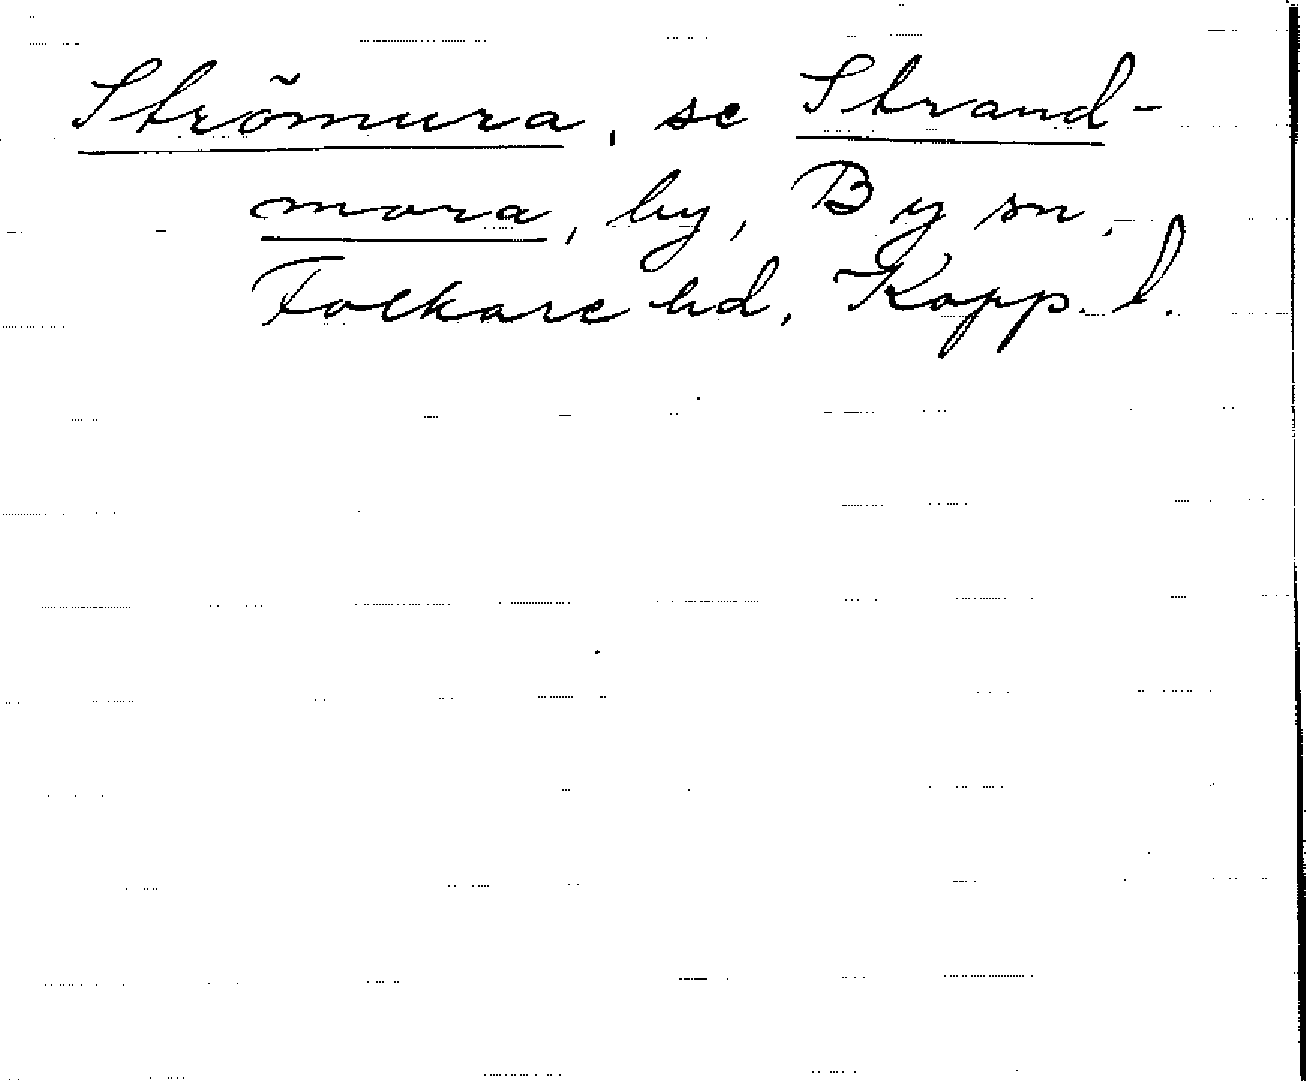 Strömura, se Strand-
mora, by, By sn,
Folkare hd, Kopp. l.